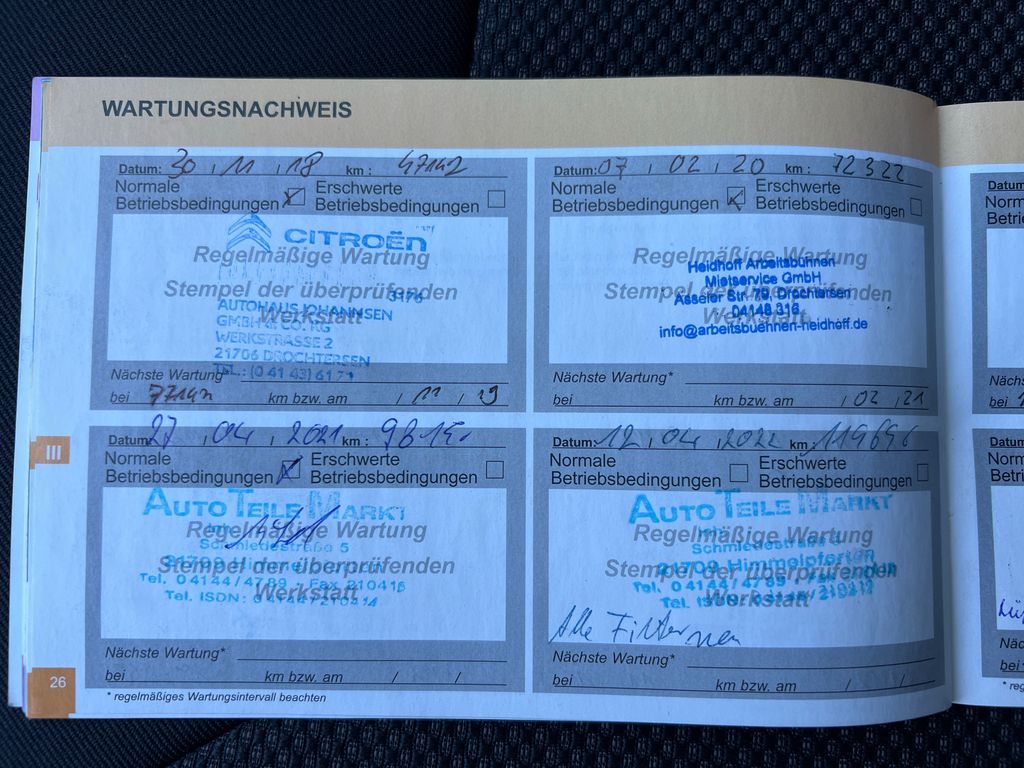 WARTUNGSNACHWEIS
Datum: 30 / 11 / 18 km : 47142
Normale Betriebsbedingungen
Erschwerte Betriebsbedingungen
CITROËN
Regelmäßige Wartung
Stempel der überprüfenden
Werkstatt
3176
AUTOHAUS JOHANNSEN
GMBH & CO. KG
WERKSTRASSE 2
21706 DROCHTERSEN
TEL.: (0 41 43) 61 71
Nächste Wartung*
bei 77142 km bzw. am / 11 / 19
Datum: 07 / 02 / 20 km : 72322
Normale Betriebsbedingungen
Erschwerte Betriebsbedingungen
Regelmäßige Wartung
Stempel der überprüfenden
Werkstatt
Heidhoff Arbeitsbühnen
Mietservice GmbH
Asseler Str. 79, Drochtersen
04148 316
info@arbeitsbuehnen-heidhoff.de
Nächste Wartung*
bei km bzw. am / 02 / 21
Datum: 27 / 04 / 2021 km : 9815-
Normale Betriebsbedingungen
Erschwerte Betriebsbedingungen
AUTO TEILE MARKT
Regelmäßige Wartung
Schmiedestraße 5
Stempel der überprüfenden
Werkstatt
21709
Tel. 04144/4789 - Fax 210416
Tel. ISDN: 04144/210414
Nächste Wartung*
bei km bzw. am / /
Datum: 12 / 04 / 2022 km : 119696
Normale Betriebsbedingungen
Erschwerte Betriebsbedingungen
AUTO TEILE MARKT
Regelmäßige Wartung
Schmiedestraße
Stempel der überprüfenden
Werkstatt
21709 Himmelpforten
Tel. 04144/4789 - Fax
Tel. ISDN:
Alle Filter neu
Nächste Wartung*
bei km bzw. am / /
III
26
* regelmäßiges Wartungsintervall beachten